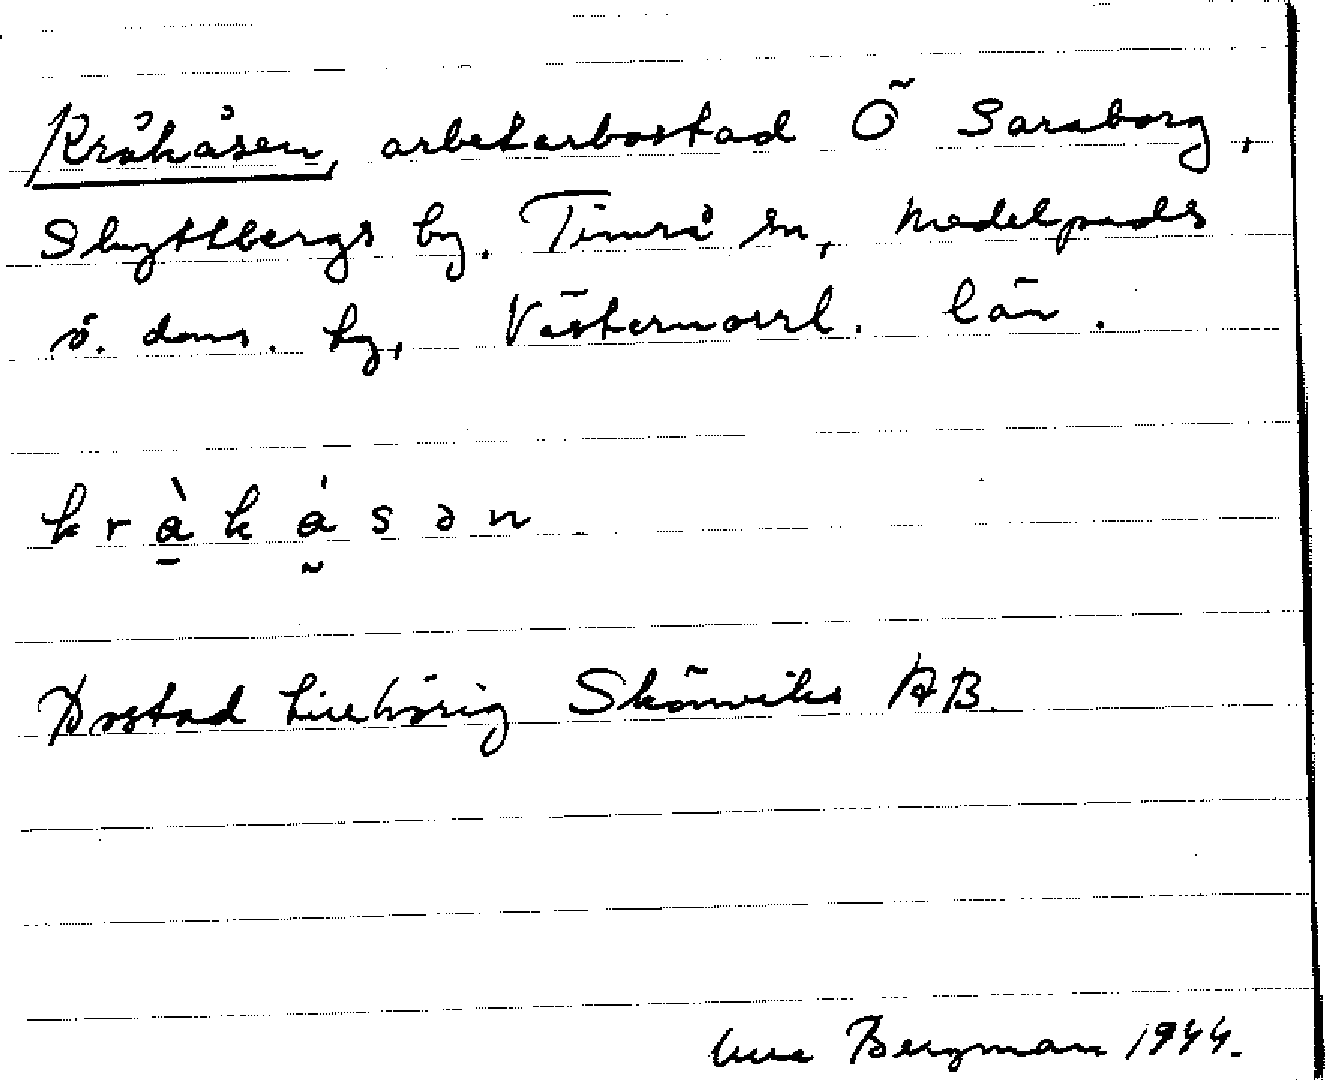 Kråkåsen, arbetarbostad Ö Saraborg,
Skyttbergs by. Timrå sn, Medelpads
ö. doms. hg, Västernorrl. län.
k r à k á s ə n
Bostad tillhörig Skönviks AB.
Bergman 1944.